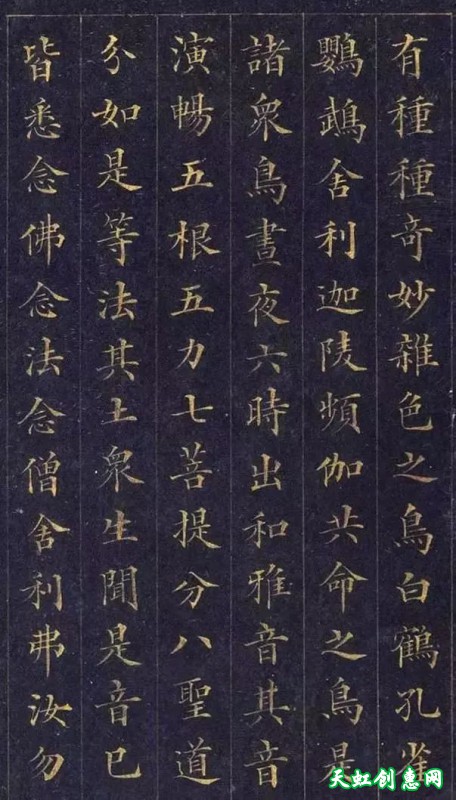 有種種奇妙雜色之鳥白鶴孔雀
鸚鵡舍利迦陵頻伽共命之鳥是
諸眾鳥晝夜六時出和雅音其音
演暢五根五力七菩提分八聖道
分如是等法其土眾生聞是音已
皆悉念佛念法念僧舍利弗汝勿
天虹创惠网